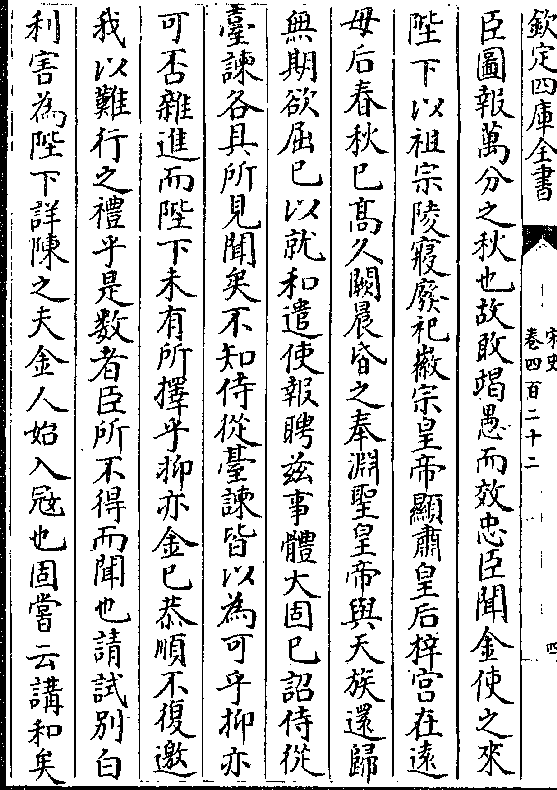 欽定四庫全書
宋史
卷四百二十二
四
臣圖報萬分之秋也故敢竭愚而效忠臣聞金使之來
陛下以祖宗陵寢廢祀徽宗皇帝顯肅皇后梓宮在遠
母后春秋已髙久闕晨昏之奉淵聖皇帝與天族還歸
無期欲屈已以就和遣使報聘兹事體大固已詔侍從
臺諫各具所見聞矣不知侍從臺諫皆以為可乎抑亦
可否雜進而陛下未有所擇乎抑亦金已恭順不復邀
我以難行之禮乎是数者臣所不得而聞也請試別白
利害為陛下詳陳之夫金人始入冦也固嘗云講和矣